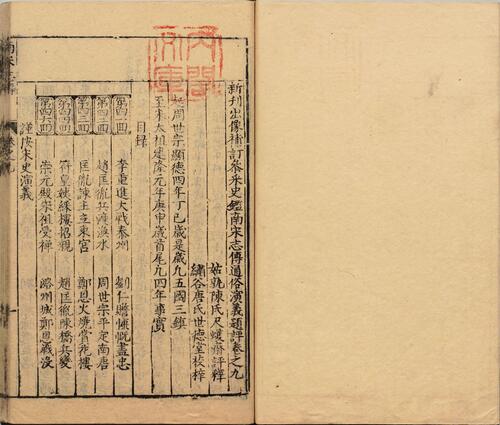 新刊出像補訂參采史鑑南宋志傳通俗演義題評卷之九
姑孰陳氏尺蠖齋評釋
繡谷唐氏世德堂校梓
起周世宗顯德四年丁巳歲是歲凡五國三鎮
至宋太祖建隆元年庚申歲首尾凡四年事實
目錄
第四一回 李重進大戰泰州 劉仁贍慷慨盡忠
第四二回 趙匡胤兵渡渙水 周世宗平定南唐
第四三回 匡胤諫主立東宮 鄭恩火燒賞花樓
第四四回 符皇后綵樓招親 趙匡胤陳橋兵變
第四五回 崇元殿宋祖受禪 潞州城鄭恩戰沒
謹按宋史演義